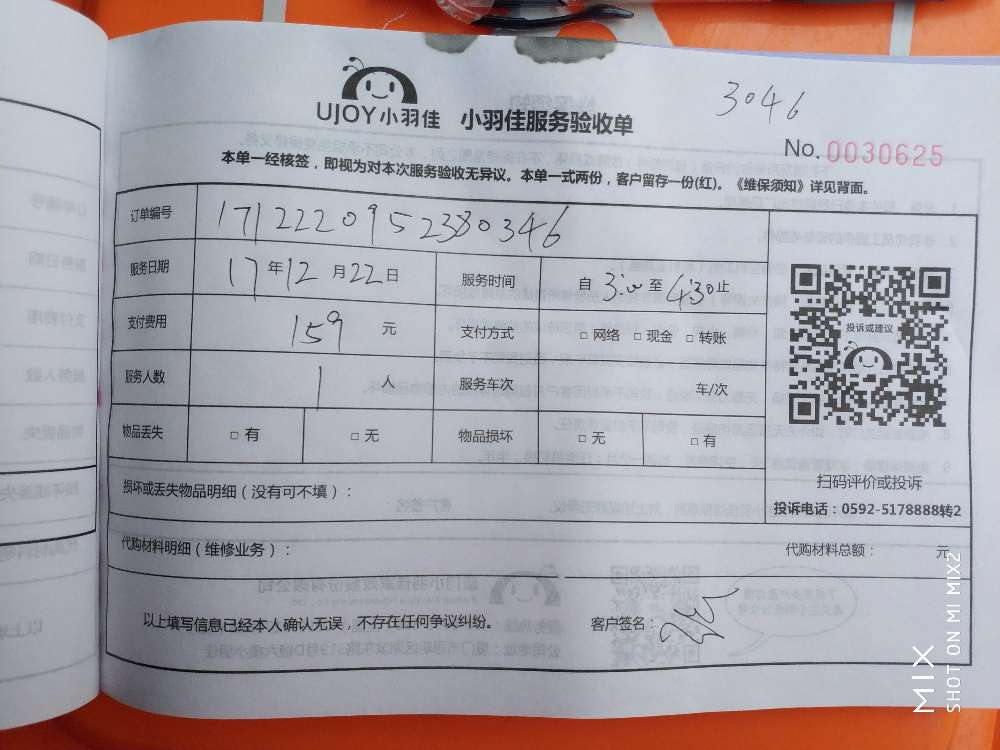 3046
UJOY小羽佳 小羽佳服务验收单
No. 0030625
本单一经核签，即视为对本次服务验收无异议。本单一式两份，客户留存一份(红)。《维保须知》详见背面。
订单编号 1712220952380346
服务日期 17 年 12 月 22 日 服务时间 自 3:00 至 4:30 止
支付费用 159 元 支付方式 □ 网络 □ 现金 □ 转账
投诉或建议
服务人数 1 人 服务车次 车/次
物品丢失 □ 有 □ 无 物品损坏 □ 无 □ 有
扫码评价或投诉
投诉电话：0592-5178888转2
损坏或丢失物品明细（没有可不填）：
代购材料明细（维修业务）： 代购材料总额： 元
以上填写信息已经本人确认无误，不存在任何争议纠纷。 客户签名：
MIX
SHOT ON MI MIX2